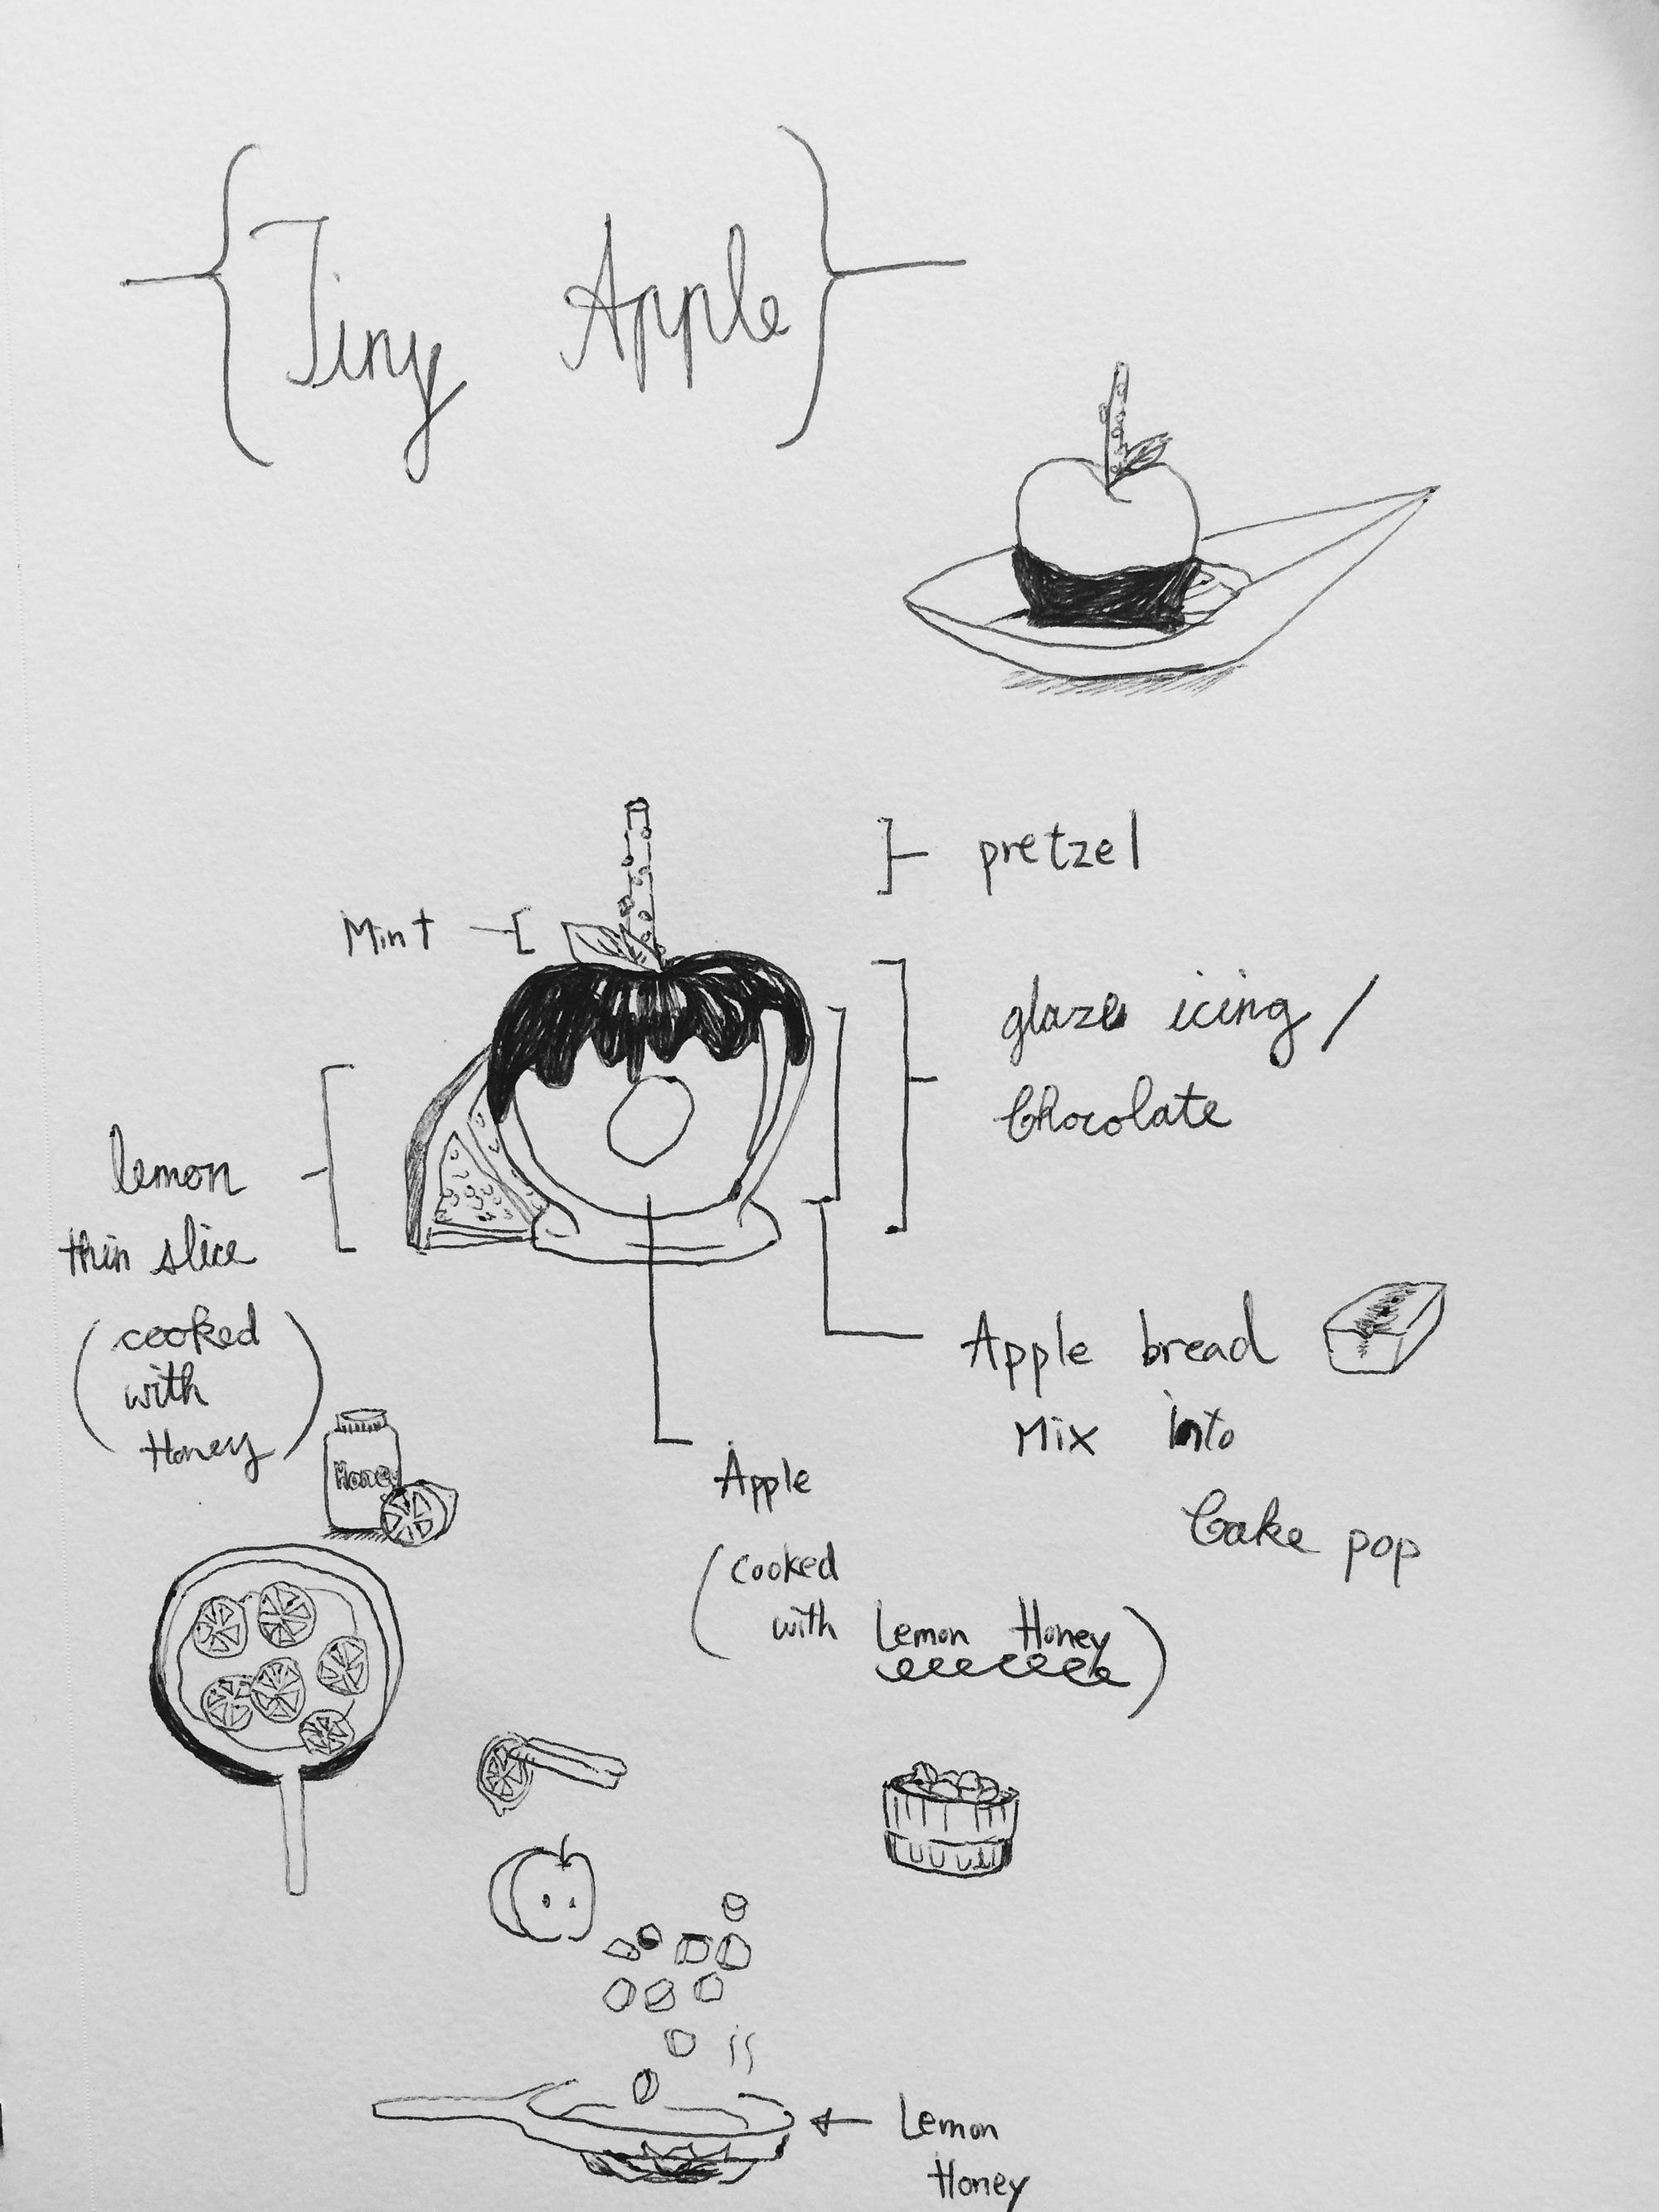 {Tiny Apple}
pretzel
Mint
glaze icing /
Chocolate
lemon
thin slice
(cooked
with
Honey)
Honey
Apple bread
Mix into
Cake pop
Apple
(cooked
with Lemon Honey)
Lemon
Honey